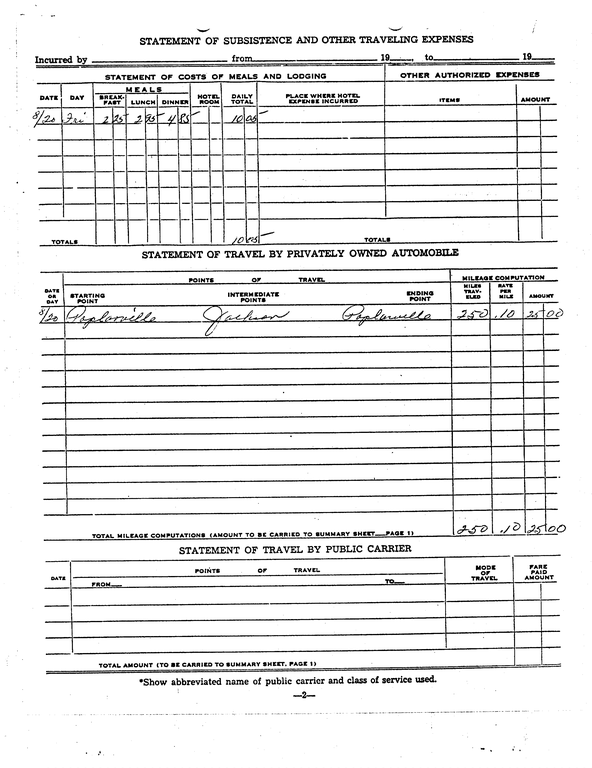 STATEMENT OF SUBSISTENCE AND OTHER TRAVELING EXPENSES
Incurred by from 19 , to 19
STATEMENT OF COSTS OF MEALS AND LODGING OTHER AUTHORIZED EXPENSES
DATE DAY MEALS BREAK-FAST LUNCH DINNER HOTEL ROOM DAILY TOTAL PLACE WHERE HOTEL EXPENSE INCURRED ITEMS AMOUNT
8/20 Fri 2 25 2 95 4 85 10 05
TOTALS 10 05 TOTALS
STATEMENT OF TRAVEL BY PRIVATELY OWNED AUTOMOBILE
POINTS OF TRAVEL MILEAGE COMPUTATION
DATE OR DAY STARTING POINT INTERMEDIATE POINTS ENDING POINT MILES TRAV-ELED RATE PER MILE AMOUNT
8/20 Poplarville Jackson Poplarville 250 .10 25 00
TOTAL MILEAGE COMPUTATIONS (AMOUNT TO BE CARRIED TO SUMMARY SHEET—PAGE 1) 250 .10 25 00
STATEMENT OF TRAVEL BY PUBLIC CARRIER
DATE POINTS OF TRAVEL MODE OF TRAVEL FARE PAID AMOUNT
FROM TO
TOTAL AMOUNT (TO BE CARRIED TO SUMMARY SHEET, PAGE 1)
*Show abbreviated name of public carrier and class of service used.
—2—